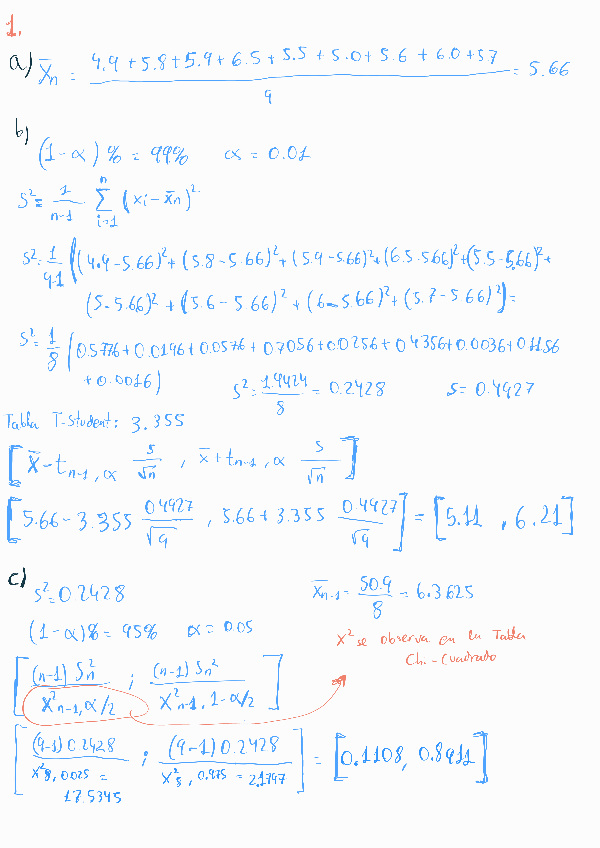 1.
a) X̄n = (4.9 + 5.8 + 5.9 + 6.5 + 5.5 + 5.0 + 5.6 + 6.0 + 5.7) / 9 = 5.66
b)
(1-α) % = 99% α = 0.01
S² = 1/(n-1) Σ_{i=1}^{n} (xi - x̄n)²
S² = 1/(9-1) ((4.9-5.66)² + (5.8-5.66)² + (5.9-5.66)² + (6.5-5.66)² + (5.5-5.66)² +
(5-5.66)² + (5.6-5.66)² + (6-5.66)² + (5.7-5.66)²) =
S² = 1/8 (0.5776 + 0.0196 + 0.0576 + 0.7056 + 0.0256 + 0.4356 + 0.0036 + 0.1156
+ 0.0016)
S² = 1.9424/8 = 0.2428 S = 0.4927
Tabla T-Student: 3.355
[x̄ - t_{n-1, α} s/√n , x̄ + t_{n-1, α} s/√n]
[5.66 - 3.355 0.4927/√9 , 5.66 + 3.355 0.4927/√9] = [5.11 , 6.21]
c)
S² = 0.2428 X̄n-1 = 50.9/8 = 6.3625
(1-α)% = 95% α = 0.05
X² se observa en la Tabla
Chi-Cuadrado
[(n-1) Sn² / X²n-1, α/2 ; (n-1) Sn² / X²n-1, 1-α/2]
[(9-1) 0.2428 / X²8, 0.025 = 17.5345 ; (9-1) 0.2428 / X²8, 0.975 = 2.1797] = [0.1108, 0.8911]